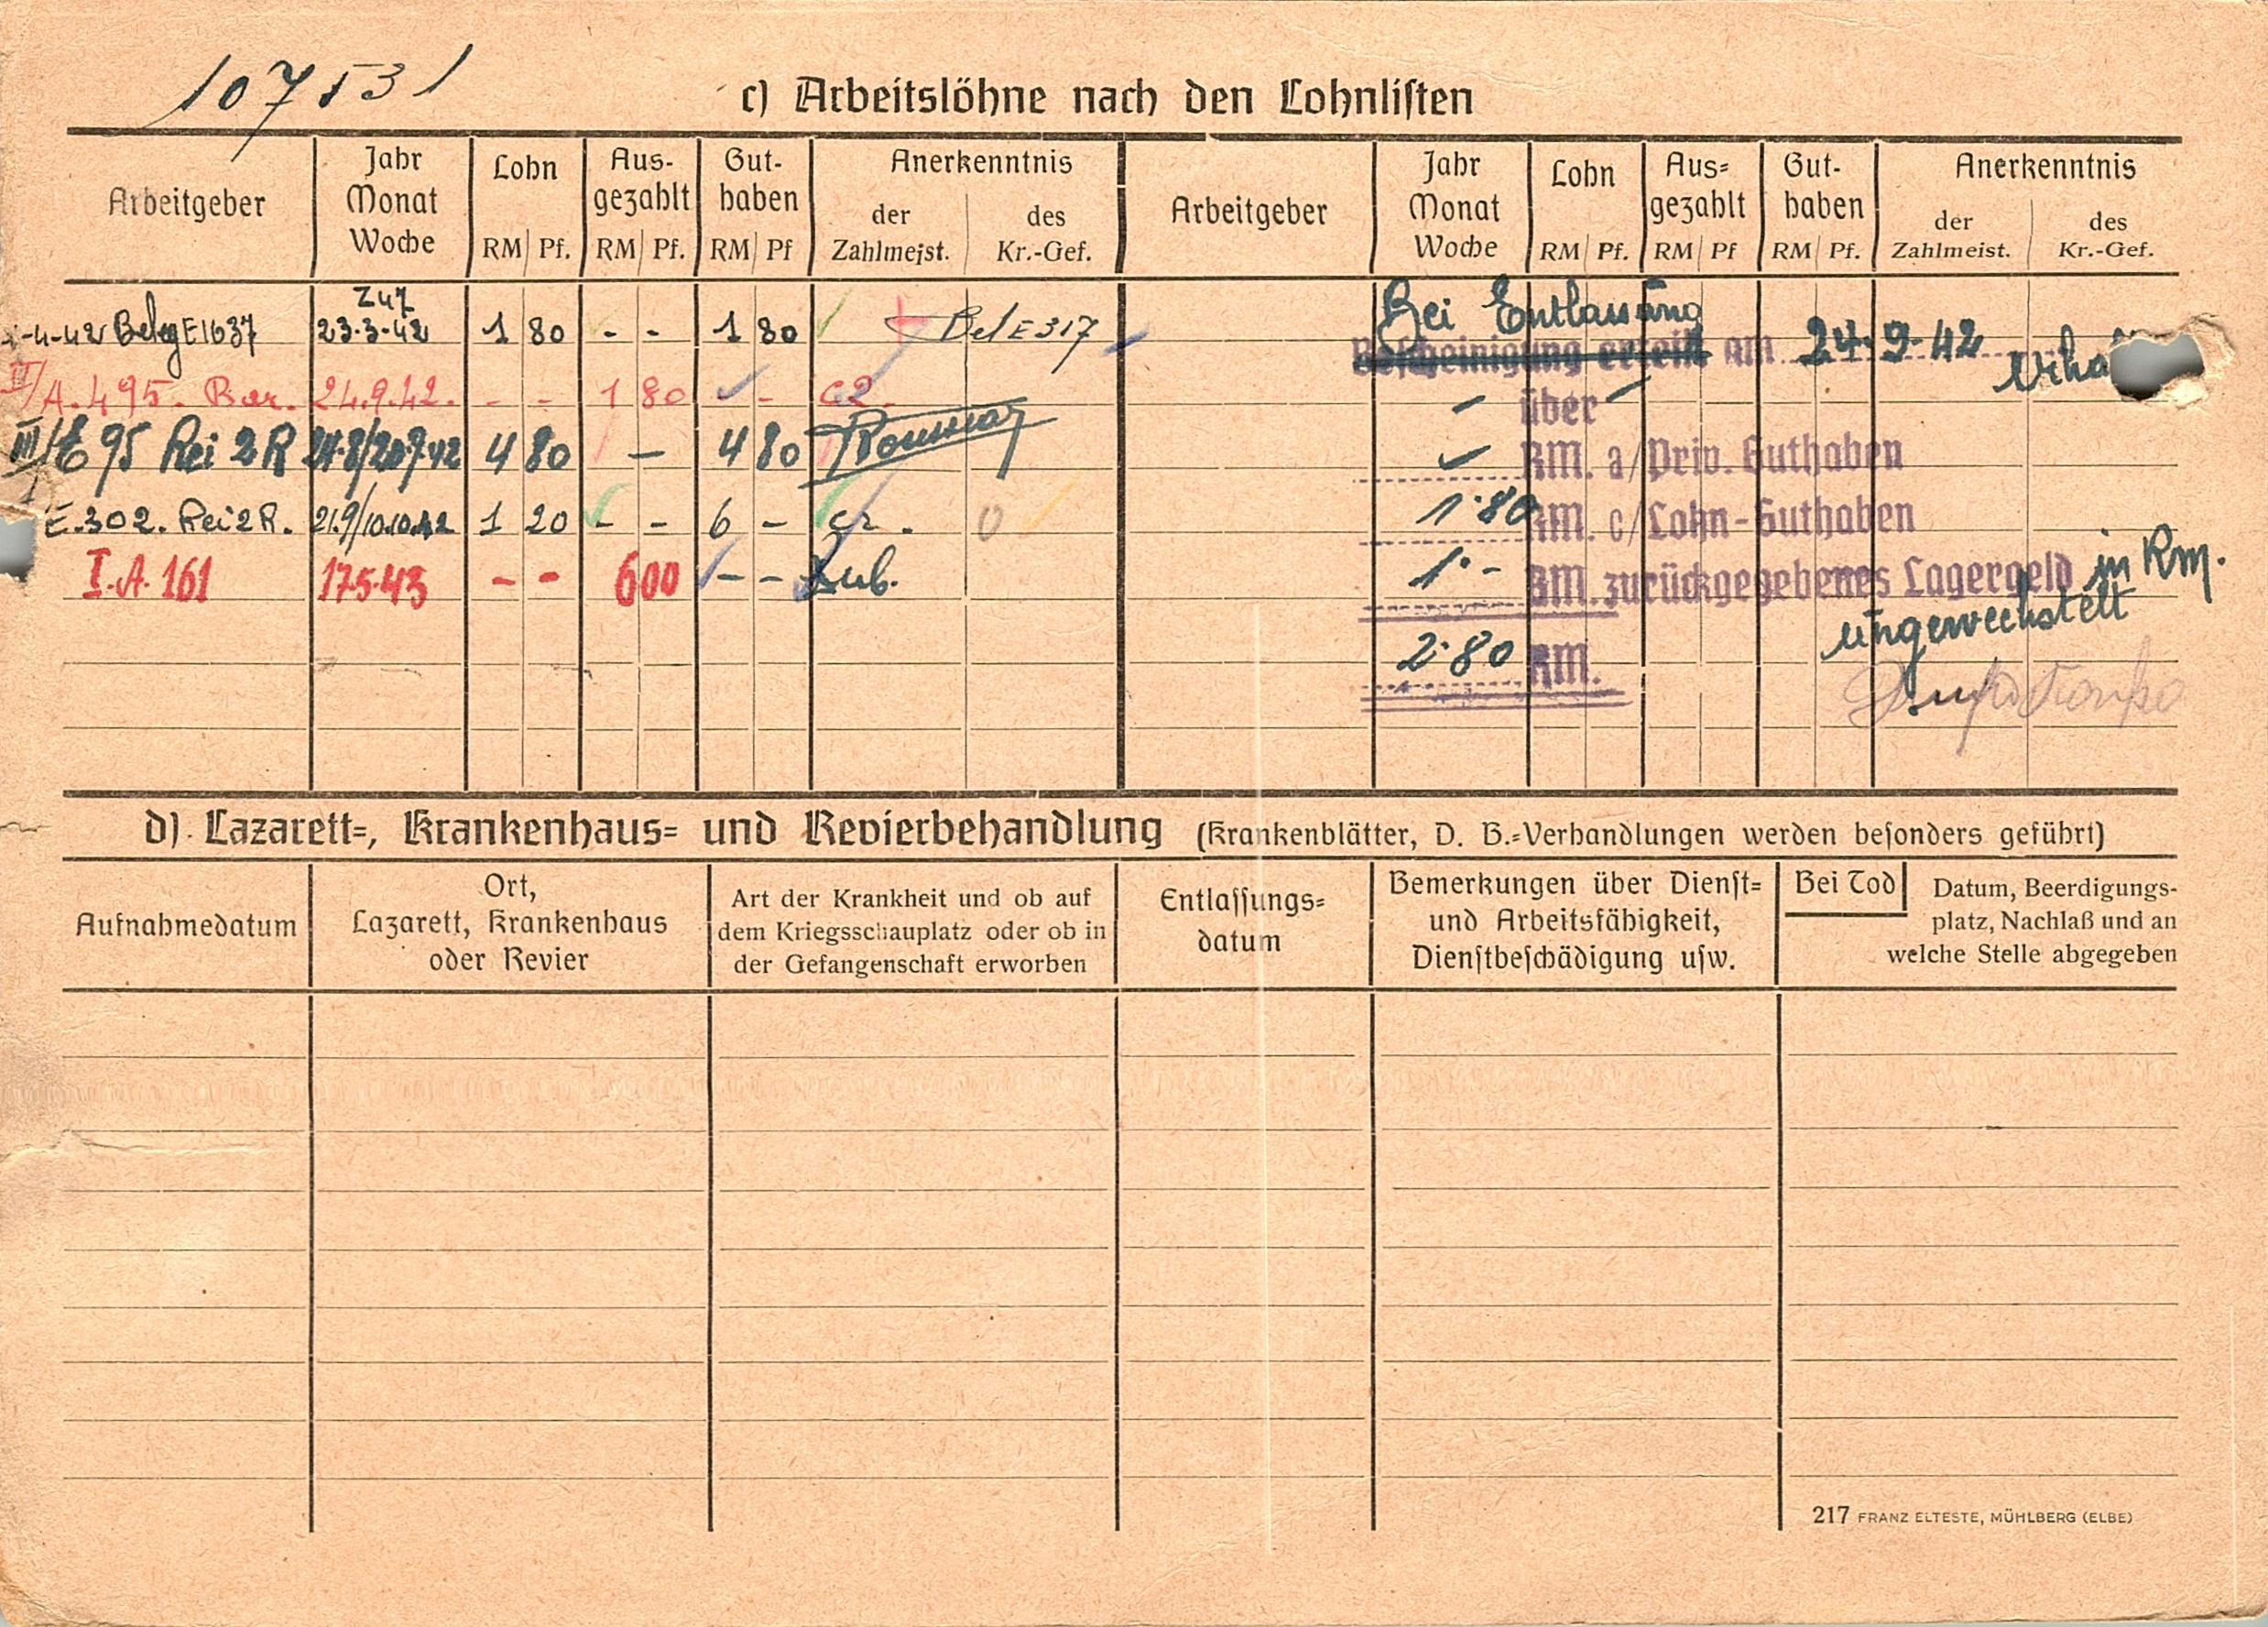 107531
c) Arbeitslöhne nach den Lohnlisten
Arbeitgeber Jahr Monat Woche Lohn RM Pf. Aus-gezahlt RM Pf. Gut-haben RM Pf Anerkenntnis der Zahlmeist. des Kr.-Gef. Arbeitgeber Jahr Monat Woche Lohn RM Pf. Aus=gezahlt RM Pf Gut-haben RM Pf. Anerkenntnis der Zahlmeist. des Kr.-Gef.
-4-42 Beleg E1637 23.3.42 1 80 - - 1 80 Bel E 317
III/A. 495. Bar. 24.9.42. - - 1 80 - c2.
III/E 95 Rei 2 R 4 80 — 4 80
E.302. Rei 2 R. 21.9/10.10.42 1 20 - - 6 -
I.A. 161 17.5.43 - - 600 - - Dub.
Bei Entlassung
Bescheinigung erteilt am 24.9.42
- über -
RM. a/Priv. Guthaben
1.80 RM. c/Lohn-Guthaben
1.- RM. zurückgegebenes Lagergeld in Rm.
umgewechstelt
2.80 RM.
d). Lazarett=, Krankenhaus= und Revierbehandlung (Krankenblätter, D. B.=Verhandlungen werden besonders geführt)
Aufnahmedatum
Ort,
Lazarett, Krankenhaus
oder Revier
Art der Krankheit und ob auf
dem Kriegsschauplatz oder ob in
der Gefangenschaft erworben
Entlassungs=
datum
Bemerkungen über Dienst=
und Arbeitsfähigkeit,
Dienstbeschädigung usw.
Bei Tod Datum, Beerdigungs-
platz, Nachlaß und an
welche Stelle abgegeben
217 FRANZ ELTESTE, MÜHLBERG (ELBE)